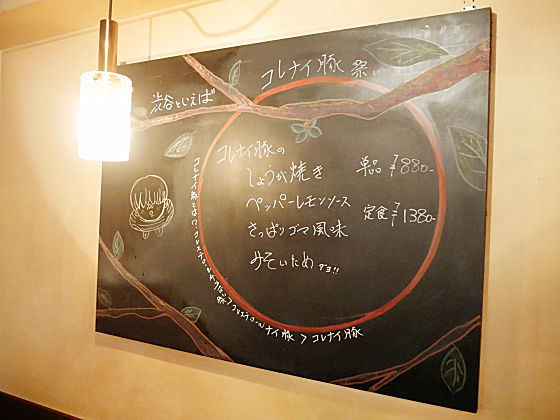 コレナイ豚祭
渋谷といえば
コレナイ豚の
しょうが焼き
ペッパーレモンソース
さっぱりゴマ風味
みそいため ダヨ!!
単品 ¥880-
定食 ¥1380-
コレナイ豚とは?コレステロールが
豚>コレステロールナイ豚>コレナイ豚